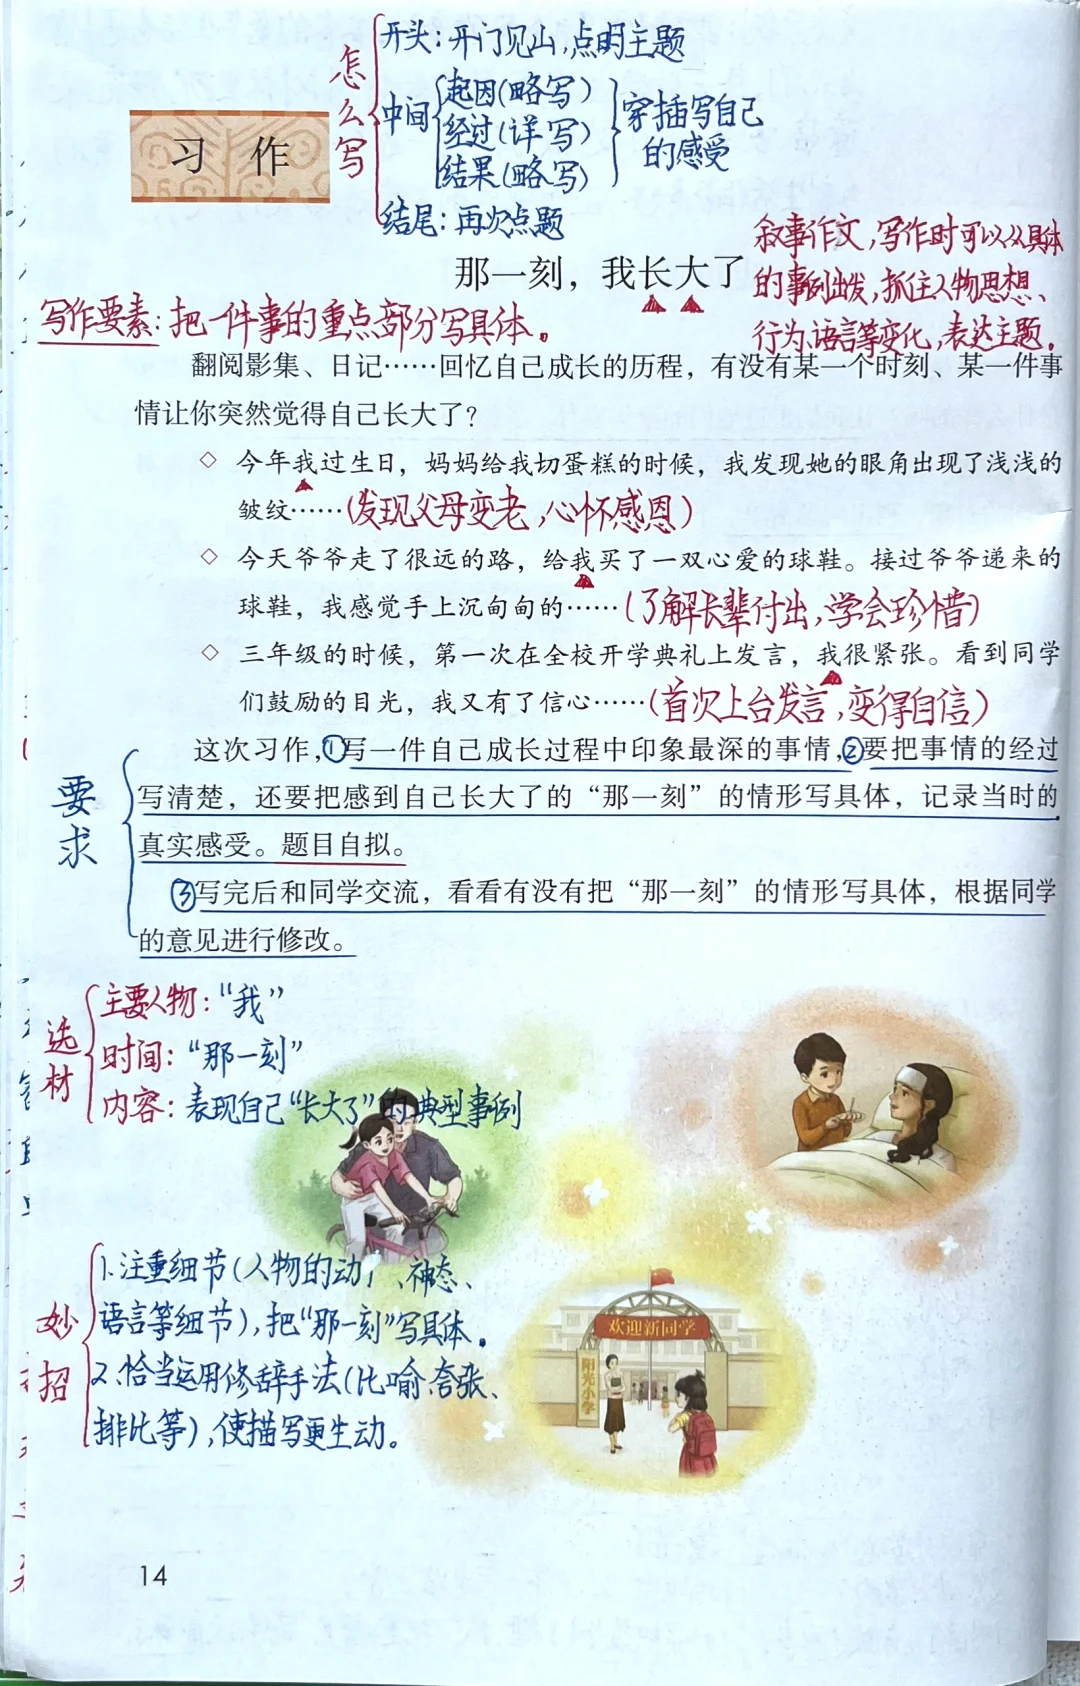 怎么写
开头：开门见山，点明主题
中间
起因（略写）
经过（详写）
结果（略写）
穿插写自己
的感受
结尾：再次点题
习 作
那一刻，我长大了
叙事作文，写作时可以从具体
的事例出发，抓住人物思想、
行为、语言等变化，表达主题。
写作要素：把一件事的重点部分写具体。
翻阅影集、日记……回忆自己成长的历程，有没有某一个时刻、某一件事
情让你突然觉得自己长大了？
◇ 今年我过生日，妈妈给我切蛋糕的时候，我发现她的眼角出现了浅浅的
皱纹……（发现父母变老，心怀感恩）
◇ 今天爷爷走了很远的路，给我买了一双心爱的球鞋。接过爷爷递来的
球鞋，我感觉手上沉甸甸的……（了解长辈付出，学会珍惜）
◇ 三年级的时候，第一次在全校开学典礼上发言，我很紧张。看到同学
们鼓励的目光，我又有了信心……（首次上台发言，变得自信）
要求
这次习作，①写一件自己成长过程中印象最深的事情，②要把事情的经过
写清楚，还要把感到自己长大了的“那一刻”的情形写具体，记录当时的
真实感受。题目自拟。
③写完后和同学交流，看看有没有把“那一刻”的情形写具体，根据同学
的意见进行修改。
选材
主要人物：“我”
时间：“那一刻”
内容：表现自己“长大了”的典型事例
妙招
1.注重细节（人物的动、神态、
语言等细节），把“那一刻”写具体。
2.恰当运用修辞手法（比喻、夸张、
排比等），使描写更生动。
欢迎新同学
阳光小学
14